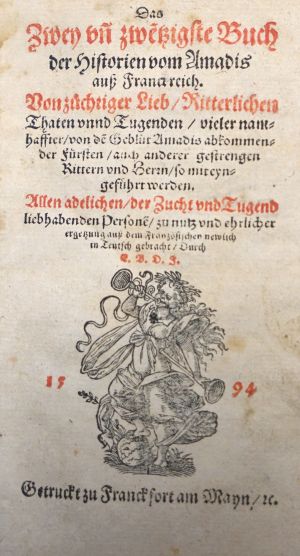 Das
Zwey vñ zwẽtzigste Buch
der Historien vom Amadis
auß Franckreich.
Von züchtiger Lieb / Ritterlichen
Thaten vnnd Tugenden / vieler nam-
haffter / von dẽ Geblüt Amadis abkommen-
der Fürsten / auch anderer gestrengen
Rittern vnd Herrn / so mit eyn-
geführt werden.
Allen adelichen / der Zucht vnd Tugend
liebhabenden Personẽ / zu nutz vnd ehrlicher
ergetzung auß dem Frantzösischen newlich
in Teutsch gebracht / Durch
1594
Getruckt zu Franckfort am Mayn / ꝛc.